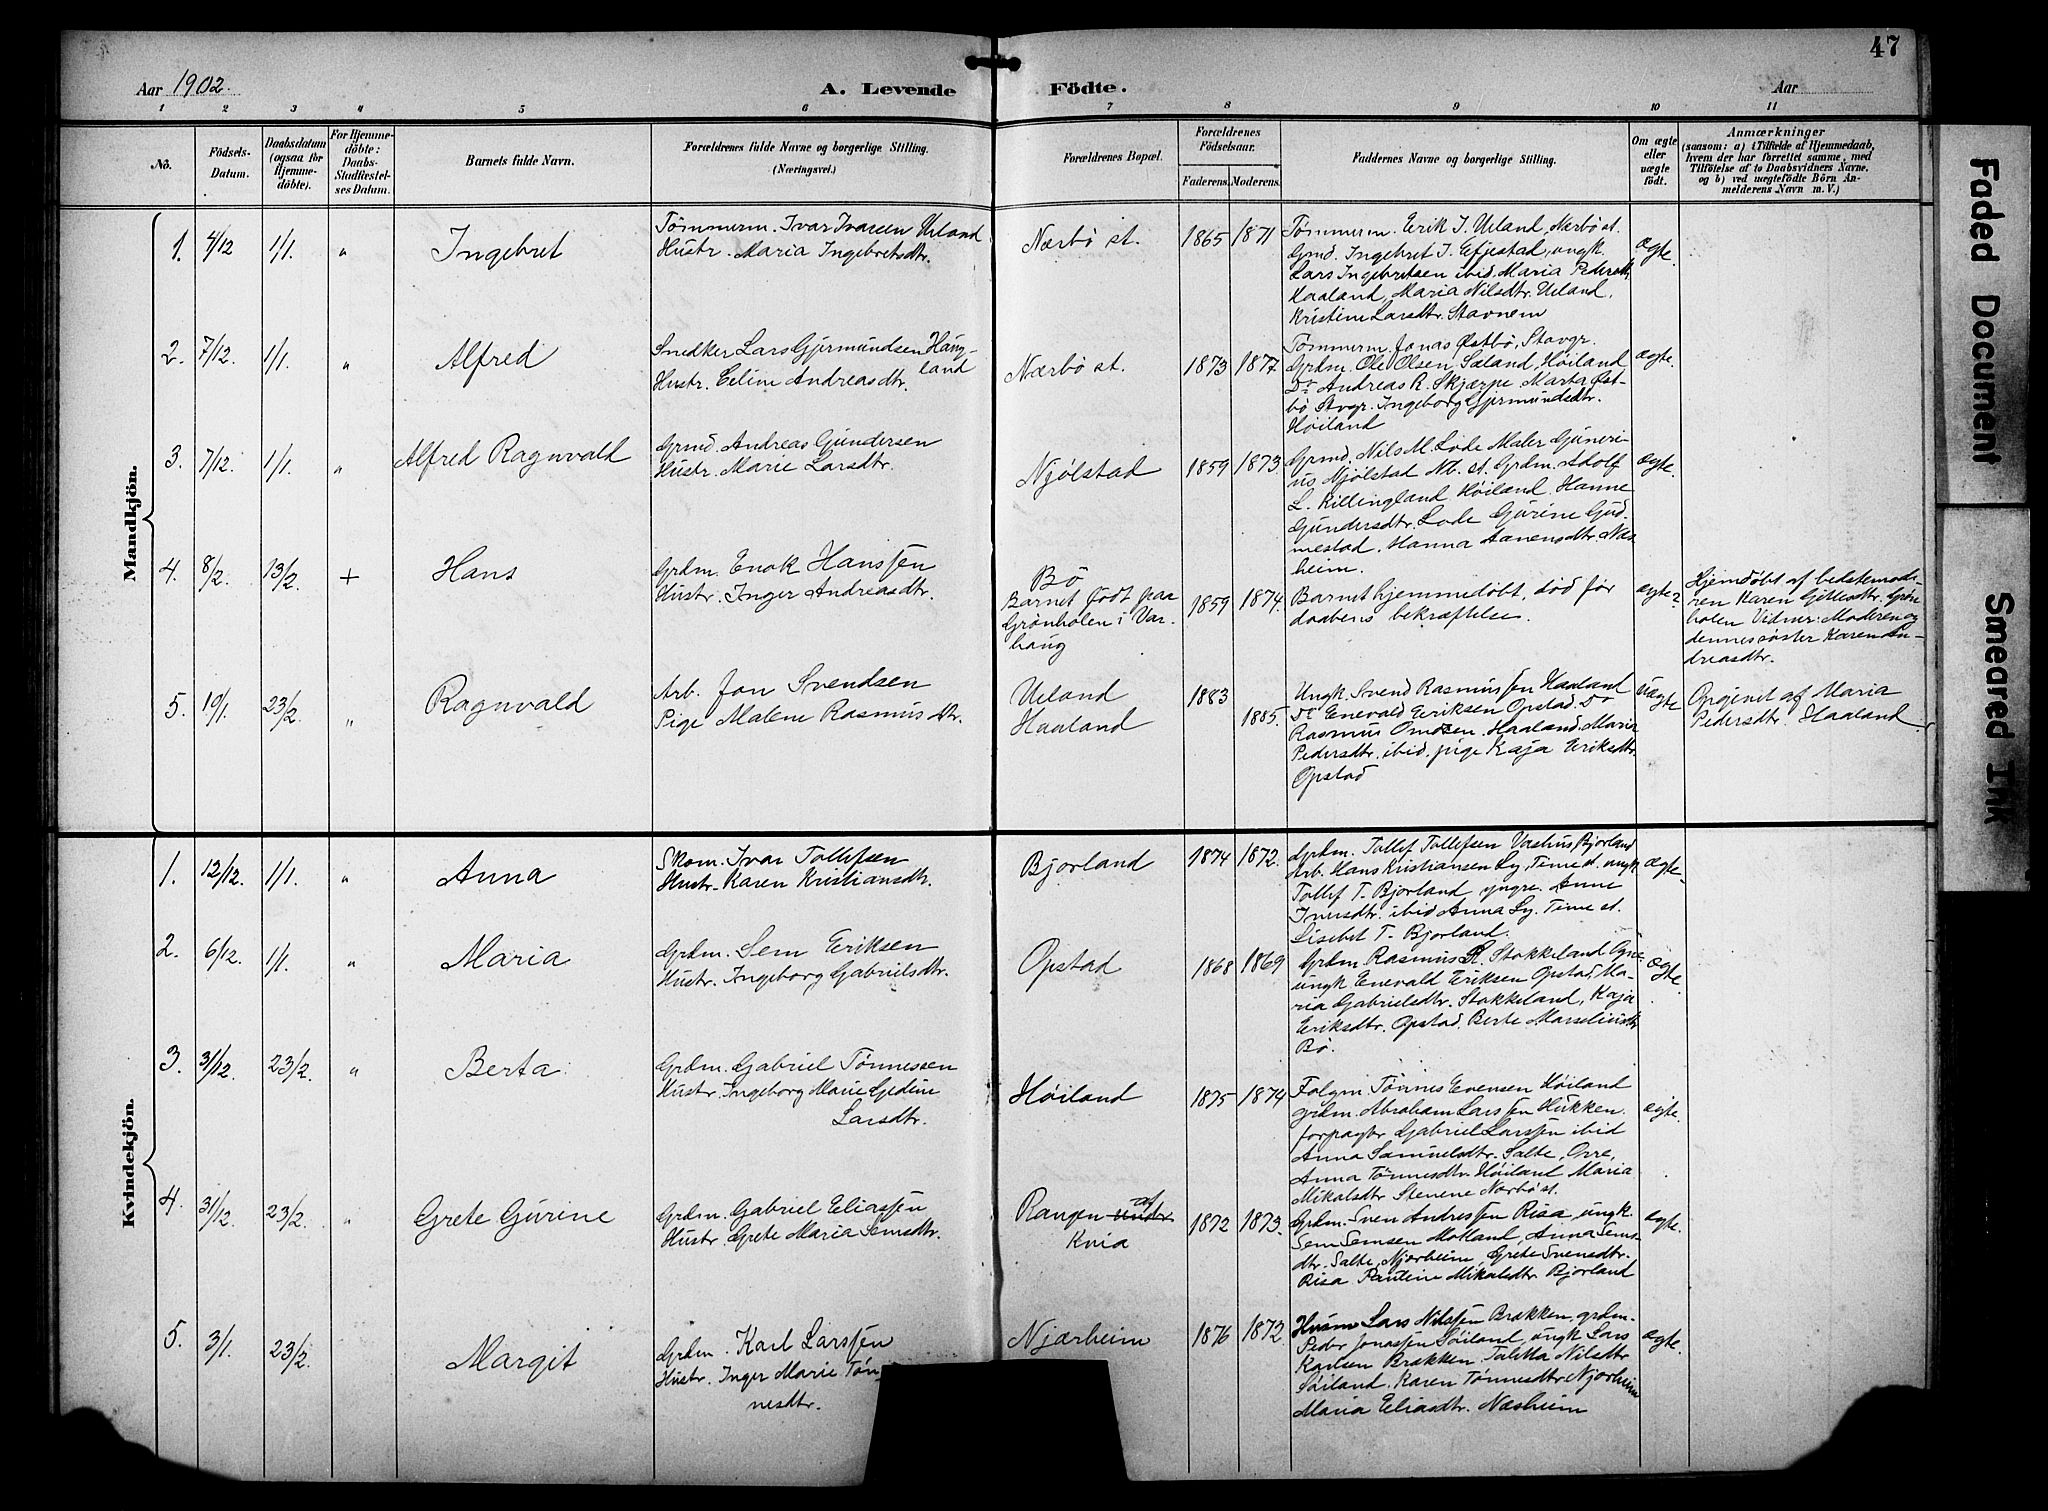 47
Aar 1902.
A. Levende Födte.
Aar
1 2 3 4 5 6 7 8 9 10 11
No.
Födsels-
Datum.
Daabsdatum
(ogsaa for
Hjemme-
döbte).
For Hjemme-
döbte:
Daabs-
Stadfæstel-
ses Datum.
Barnets fulde Navn.
Forældrenes fulde Navne og borgerlige Stilling.
(Næringsvei.)
Forældrenes Bopæl.
Forældrenes
Födselsaar.
Faderens. Moderens.
Faddernes Navne og borgerlige Stilling.
Om ægte
eller
uægte
födt.
Anmærkninger
(saasom: a) i Tilfælde af Hjemmedaab,
hvem der har forrettet samme, med
Tilföielse af to Daabsvidners Navne,
og b) ved uægtefödte Börn An-
melderens Navn m. V.)
Mandkjön.
1. 4/12 1/1. " Ingebret
Tømmerm. Ivar Ivarsen Ueland
Hustr. Maria Ingebretsdtr.
Nærbö st. 1865 1871
Tømmerm. Erik I. Ueland, Nærbö st.
Grmd. Ingebret I. Efjestad, ungk.
Lars Ingebretsen ibid. Maria Pedersdtr.
Haaland, Maria Nilsdtr. Ueland.
Kristine Larsdtr. Stavnem
ægte.
2. 7/12. 1/1. " Alfred
Snedker Lars Gjermundsen Haug-
land
Hustr. Eeline Andreasdtr.
Nærbö st. 1873 1877.
Tømmerm. Jonas Østbö, Stavgr.
Grdm. Ole Olsen Sæland, Høiland
Do Andreas R. Skjærpe Marta Øst-
bö Stvgr. Ingeborg Gjermundsdtr.
Høiland
ægte.
3. 7/12. 1/1. " Alfred Ragnvald
Grmd. Andreas Gundersen
Hustr. Marie Larsdtr.
Njølstad 1859 1873.
Grmd. Nils M. Lode Maler Guneri-
us Njølstad Nb. st. Grdm. Adolf
L. Killingland Høiland. Hanne
Gundersdtr. Lode Gurine Gud-
mestad. Hanna Aanensdtr. Næs-
heim.
ægte.
4. 8/2. 13/2 + Hans
Grdm. Enok Hanssen
Hustr. Inger Andreasdtr.
Bö
Barnet født paa
Grönholen i Var-
haug
1859 1874.
Barnet hjemmedöbt, död för
daabens bekræftelse.
ægte
Hjemdöbt af bedstemode-
ren Karen Gitlesdtr. Grön-
holen Vidner: Moderen og
dennes søster Karen An-
dreasdtr.
5. 19/1. 23/2. " Ragnvald
Arb. Jon Svendsen
Pige Malene Rasmusdtr.
Ueland
Haaland
1883
1885.
Ungk. Svend Rasmussen Haaland
Do Enevald Eriksen Opstad. Do
Rasmus Omdsen. Haaland. Maria
Pedersdtr. ibid. pige Kaja Eriksdtr.
Opstad
uægte
Opgivet af Maria
Pedersdtr. Haaland
Kvindekjön.
1. 12/12. 1/1. " Anna
Skom. Ivar Tollefsen
Hustr. Karen Kristiansdtr.
Bjorland 1874 1872.
Grdm. Tollef Tollefsen Vashus Bjorland
Arb. Hans Kristiansen Ly, Time st. ungk
Tollef T. Bjorland yngre. Anne
Iversdtr. ibid Anna Ly. Time st.
Lisebet T. Bjorland.
ægte.
2. 6/12. 1/1. " Maria
Grdm. Sem Eriksen
Hustr. Ingeborg Gabrielsdtr.
Opstad 1868 1869
Grdm Rasmus R. Stokkeland Ogne
ungk Enevald Eriksen Opstad, Ma-
ria Gabrielsdtr. Stokkeland, Kaja
Eriksdtr. Opstad. Berte Marseliusdtr.
Bö.
ægte.
3. 31/12. 23/2. " Berta
Grdm. Gabriel Tönnessen
Hustr. Ingeborg Marie Gjedine
Larsdtr.
Høiland 1875 1874
Folgm. Tönnes Evensen Høiland
grdm. Abraham Larssen Hukken.
forpagtr Gabriel Larssen ibid
Anna Samuelsdtr. Salte, Orre,
Anna Tönnesdtr. Høiland Maria
Mikalsdtr Stenene Nærbö st.
ægte.
4. 31/12. 23/2. " Grete Gurine
Grdm. Gabriel Eliassen
Hustr. Grete Maria Semsdtr.
Rangen under af
Kvia
1872 1873.
Grdm. Sven Andressen Risa ungk.
Sem Semsen Motland, Anna Sems-
dtr. Salte, Njærheim, Grete Svensdtr.
Risa Pauline Mikalsdtr Bjorland
ægte.
5. 3/1. 23/2. Margit
Grdm. Karl Larssen
Hustr. Inger Marie Tön-
nesdtr.
Njærheim 1876 1872.
Husm Lars Nilssen Brakken, grdm.
Peder Jonassen Söiland, ungk Lars
Karlsen Brakken. Talitta Nilsdtr
Söiland. Karen Tönnesdtr. Njorheim
Maria Eliasdtr. Næsheim
ægte.
Faded Document
Smeared Ink